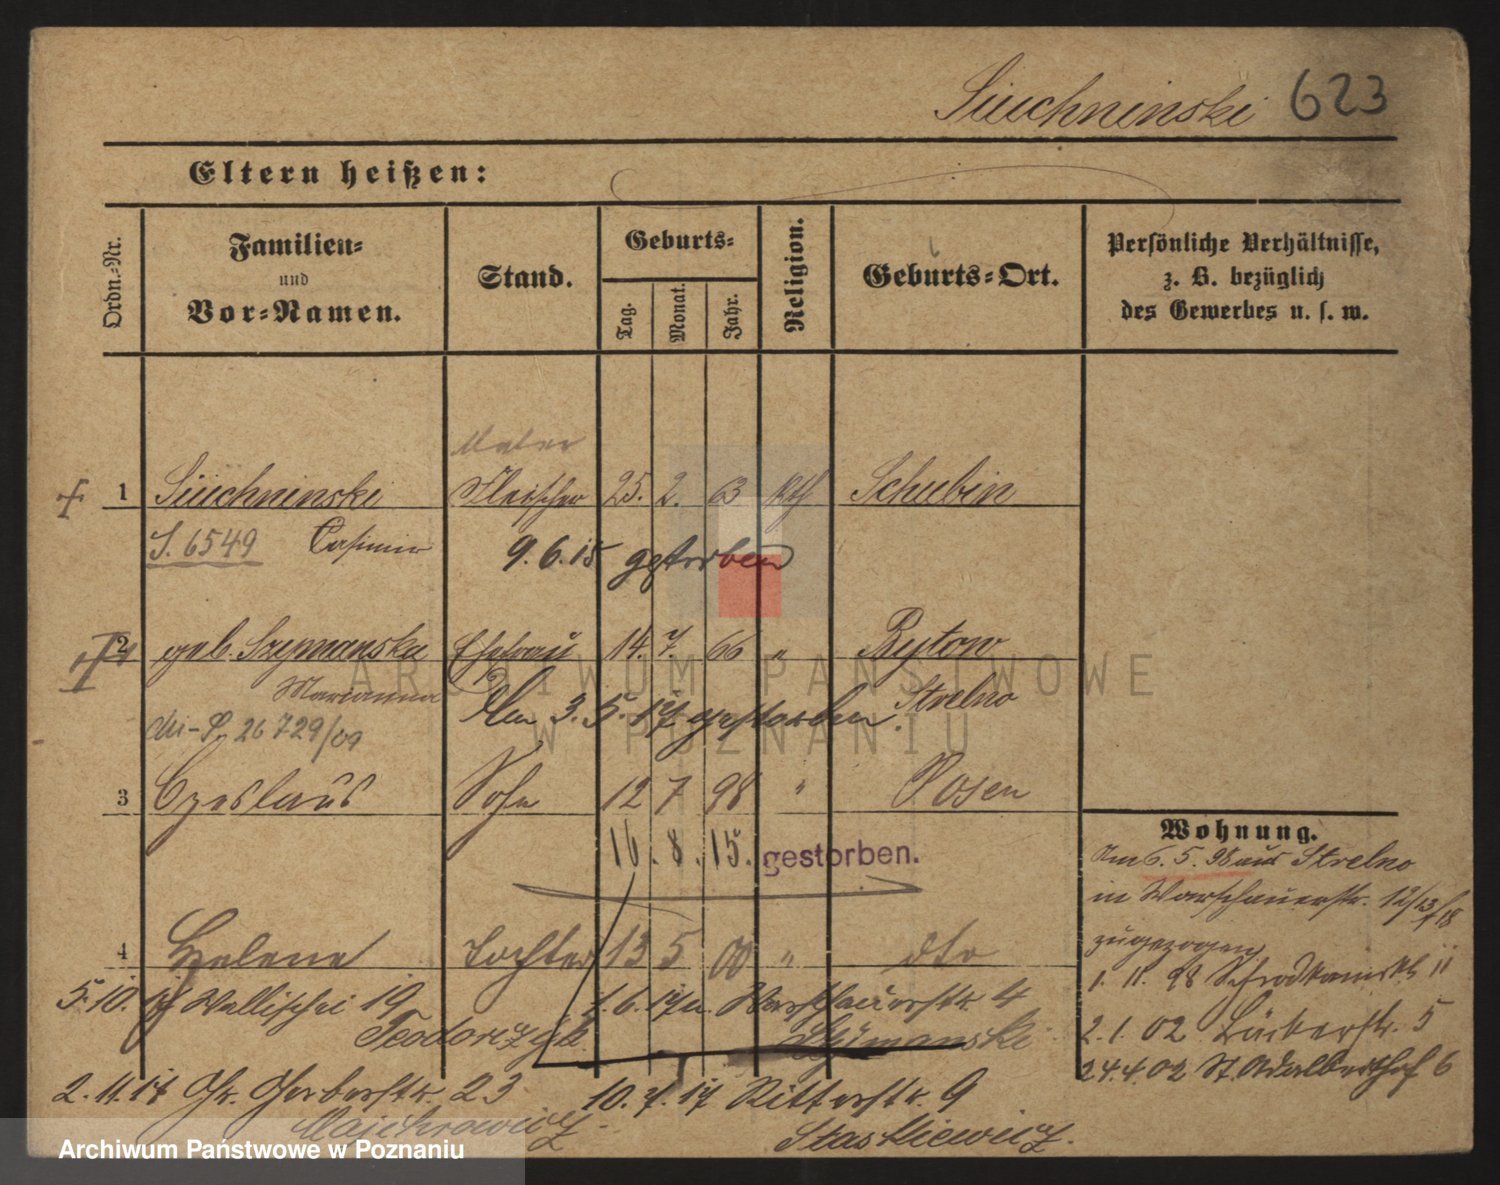 Siuchninski 623
Eltern heißen:
Ordn.-Nr.
Familien-
und
Vor-Namen.
Stand.
Geburts-
Tag.
Monat.
Jahr.
Religion.
Geburts-Ort.
Persönliche Verhältnisse,
z. B. bezüglich
des Gewerbes u. s. w.
1 Siuchninski Fleischer 25. 2. 63 kth Schubin
S. 6549 Casimir 9. 6. 15 gestorben
2 geb. Szymanska Ehefrau 14. 7. 66 " Bytow
Marianna Strelno
Am 3. 5. 17 gestorben.
26729/09
3 Czeslaus Sohn 12 7 98 " Posen
16. 8. 15. gestorben.
4 Helene Tochter 13 5 00 " dto
Wohnung.
Am 6. 5. 98 aus Strelno
in Warschauerstr. 12/13/18
zugezogen
1. 11. 98 11
2. 1. 02 5
24. 4. 02 St. Adalberthof 6
5. 10. Wallischei 19 1. 6. 17 Warschauerstr. 4
Teodorczyk Szymanski
2. 11. 17 Gr. Gerberstr. 23 10. 7. 17 Ritterstr. 9
Majchrowicz Staskiewicz.
ARCHIWUM PAŃSTWOWE
W POZNANIU
Archiwum Państwowe w Poznaniu